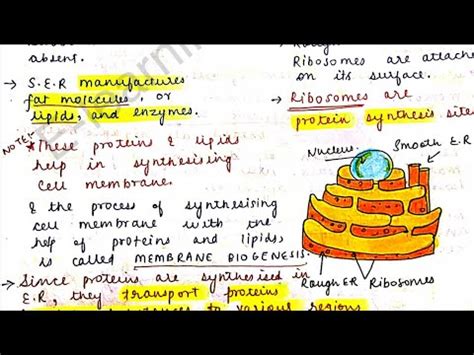 absent.
→ S.E.R manufactures
fat molecules, or
lipids, and enzymes.
NOTE!
*These protein & lipids
help in synthesising
cell membrane.
& the process of synthesising
cell membrane with the
help of proteins and lipids,
is called MEMBRANE BIOGENESIS.
→ Since proteins are synthesised in
E.R, they transport proteins
to various regions
Rough
Ribosomes are attache
on its surface.
→ Ribosomes are
protein synthesis site
Nucleus
Smooth E.R
Rough ER
Ribosomes